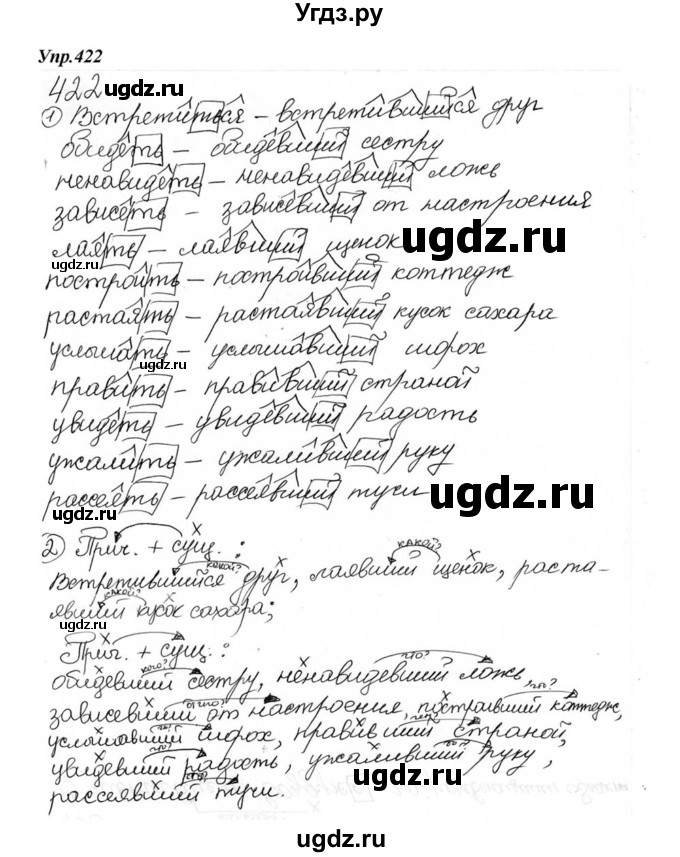 Угдз.ру
Упр.422
422 угдз.ру
1) Встретиться – встретившийся друг
обидеть – обидевший сестру
ненавидеть – ненавидевший ложь
зависеть – зависевший от настроения
лаять – лаявший щенок угдз.ру
угдз.ру
построить – построивший коттедж
растаять – растаявший кусок сахара
угдз.ру
услышать – услышавший шорох
угдз.ру
править – правивший страной
увидеть – увидевший радость
угдз.ру
ужалить – ужаливший руку
рассеять – рассеявший тучи угдз.ру
угдз.ру
2) Прич. + сущ.:
какой? какой?
Встретившийся друг, лаявший щенок, раста-
какой?
явший кусок сахара;
угдз.ру
Прич. + сущ.:
кого? что?
обидевший сестру, ненавидевший ложь,
что?
зависевший от настроения, построивший коттедж,
услышавший шорох, правивший страной,
что? что?
увидевший радость, ужаливший руку,
что?
рассеявший тучи.
угдз.ру
угдз.ру